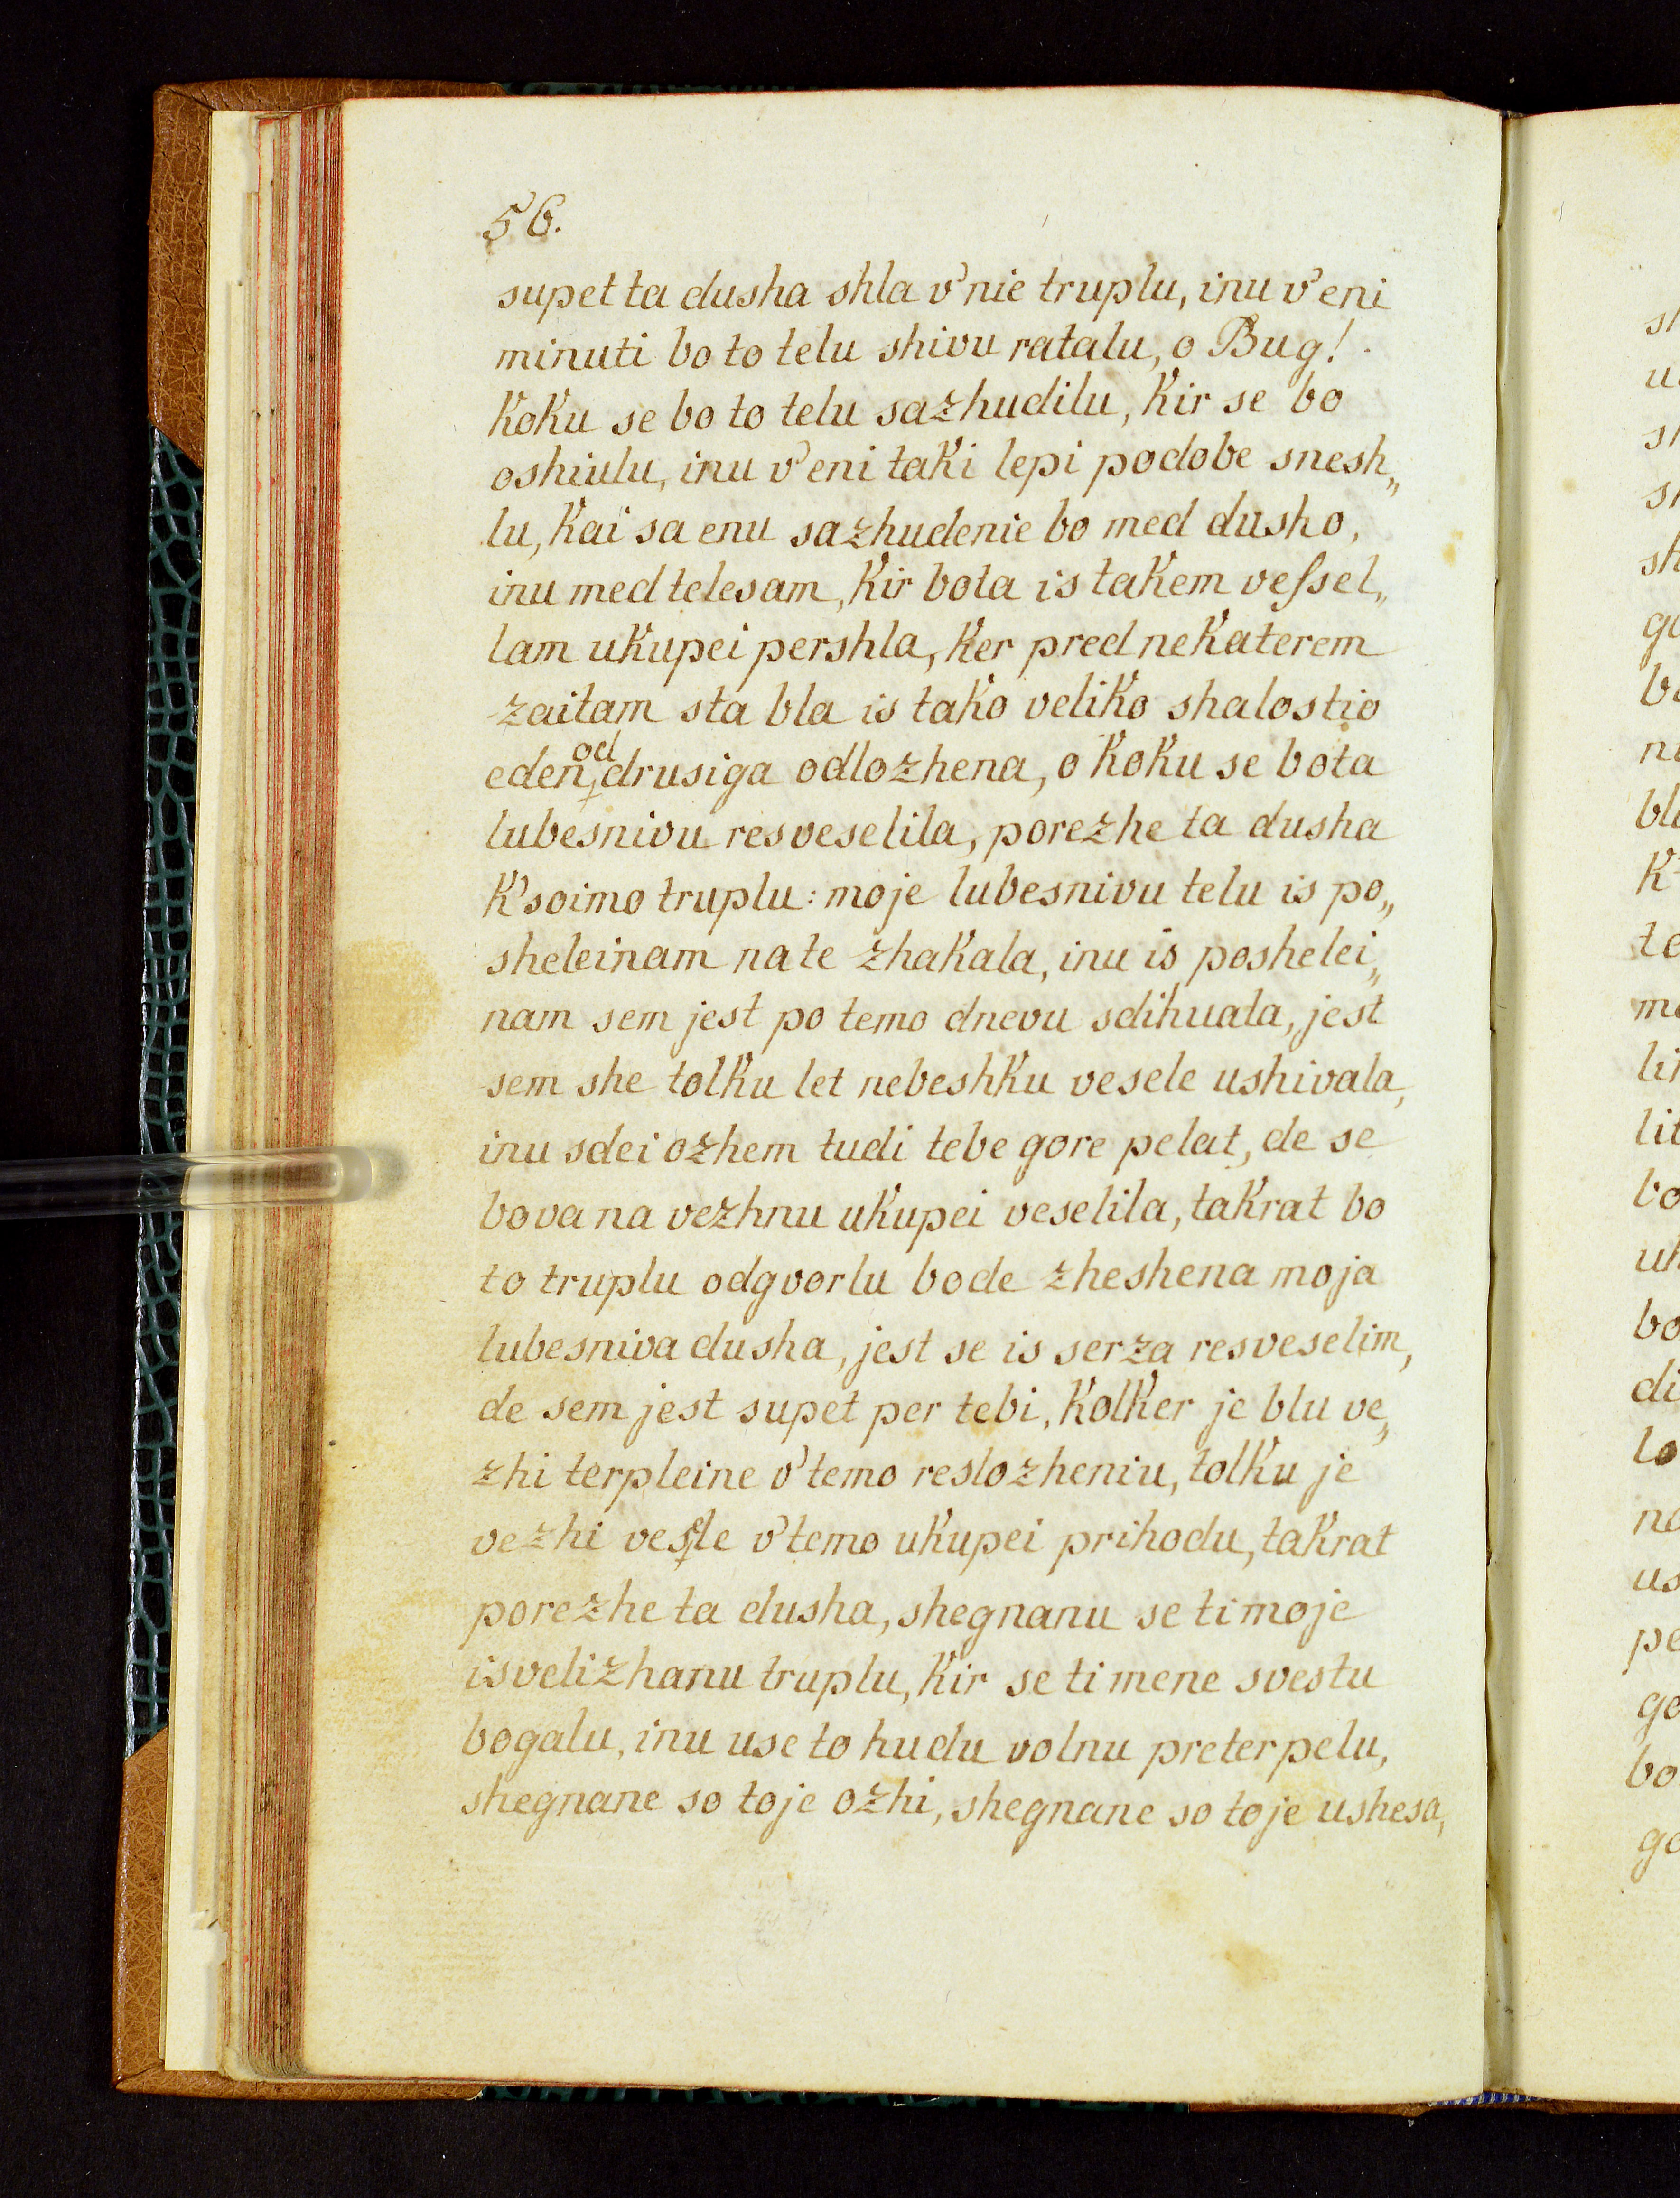 56.
supet ta dusha shla v'nie truplu, inu v'eni
minuti bo to telu shivu ratalu, o Bug!
koku se bo to telu sazhudilu, kir se bo
oshiulu, inu v'eni taki lepi podobe snesh„
lu, kai sa enu sazhudenie bo med dusho,
inu med telesam, kir bota is takem veſsel„
lam ukupei pershla, ker pred nekaterem
zaitam sta bla is tako veliko shalostio
eden od drusiga odlozhena, o koku se bota
lubesnivu resveselila, porezhe ta dusha
k'soimo truplu: moje lubesnivu telu is po„
sheleinam na te zhakala, inu is poshelei„
nam sem jest po temo dnevu sdihuala, jest
sem she tolku let nebeshku vesele ushivala,
inu sdei ozhem tudi tebe gore pelat, de se
bova na vezhnu ukupei veselila, takrat bo
to truplu odgvorlu bode zheshena moja
lubesniva dusha, jest se is serza resveselim,
de sem jest supet per tebi, kolker je blu ve„
zhi terpleine v'temo reslozheniu, tolku je
vezhi vesſle v'temo ukupei prihodu, takrat
porezhe ta dusha, shegnanu se ti moje
isvelizhanu truplu, kir se ti mene svestu
bogalu, inu use to hudu volnu preterpelu,
shegnane so toje ozhi, shegnane so toje ushesa,